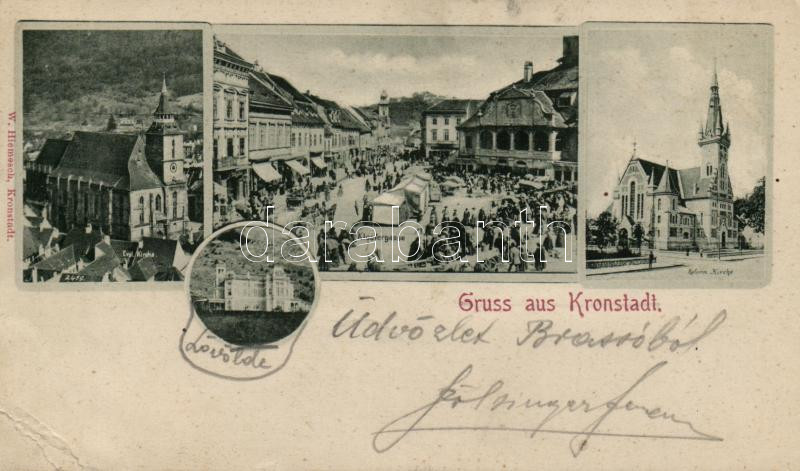 W. Hiemesch, Kronstadt.
Evgl. Kirche.
2450.
Reform. Kirche
darabanth
Gruss aus Kronstadt.
Lövölde
Üdvözlet Brassóból